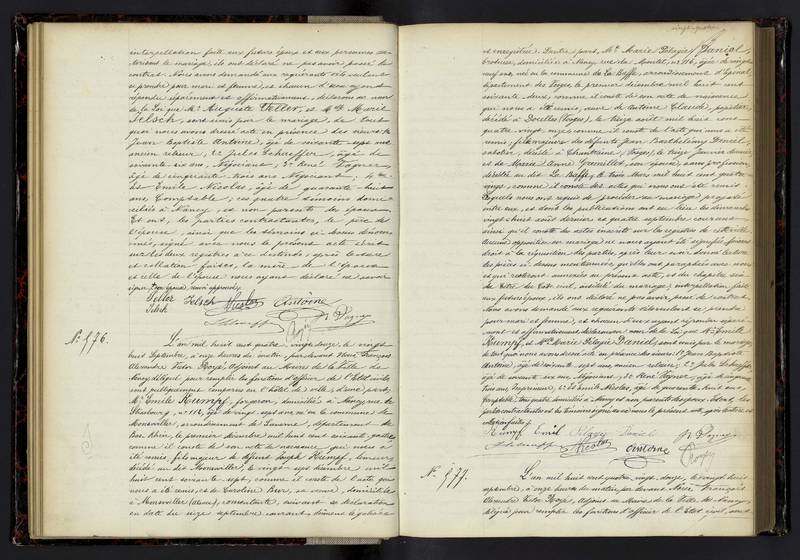 interpellation faite aux futurs époux et aux personnes au-
torisant le mariage, ils ont déclaré ne pas avoir passé de
contrat. Nous avons demandé aux requérants s'ils veulent
se prendre pour mari et femme, et chacun d'eux ayant
répondu séparément et affirmativement, déclarons au nom
de la Loi que Mr Auguste Veller, et Mlle Marie
Jelsch, sont unis par le mariage, de tout
quoi nous avons dressé acte en présence des sieurs: 1°
Jean Baptiste Antoine, âgé de soixante sept ans,
ancien relieur; 2° Jules Schaeffer, âgé de
soixante six ans, Négociant; 3° René Pagner
âgé de cinquante trois ans, Négociant; 4°
Emile Nicolas, âgé de quarante-huit
ans, Comptable; ces quatre témoins domi-
ciliés à Nancy, et non parents des époux.
Et ont, les parties contractantes, le père de
l'épouse, ainsi que les témoins ci-dessus dénom-
més, signé avec nous le présent acte écrit
sur les deux registres à ce destinés, après lecture
et collation faites, la mère de l'époux
et celle de l'épouse nous ayant déclaré ne savoir
Jelsch Nicolas Antoine
Jelsch
N° 576.
L'an mil huit cent quatre vingt douze, le vingt
huit Septembre, à onze heures du matin, par devant Nous, François
Alexandre Victor Adjoint au Maire de la Ville de
Nancy délégué pour remplir les fonctions d'officier de l'Etat civil,
sont publiquement comparus en l'hôtel de ville; d'une part,
Mr Emile Kumpf, forgeron, domicilié à Nancy, rue de
Strasbourg, n° 112, âgé de vingt sept ans, né en la commune de
Monswiller, arrondissement de Saverne, département du
Bas Rhin, le premier Novembre mil huit cent soixante quatre
comme il conste de son acte de naissance qui nous a
été remis, fils majeur de défunt Joseph Kumpf,
décédé au dit Monswiller, le vingt sept décembre mil
huit cent soixante sept, comme il conste de l'acte qui
nous a été remis, et de Caroline sa veuve, domiciliée
à Monswiller consentante suivant sa déclaration
en date du seize septembre courant, dûment légalisée
et enregistrée. D'autre part, Mlle Marie Pélagie Daniel,
brodeuse, domiciliée à Nancy, rue du Montet, n° 116, âgée de vingt
neuf ans, née en la commune de La Baffe, arrondissement d'Epinal,
département des Vosges, le premier décembre mil huit cent
soixante deux, comme il conste de son acte de naissance
qui nous a été remis, veuve de Antoine Claude, papetier,
décédé à Docelles (Vosges), le treize août mil huit cent
quatre vingt onze, comme il conste de l'acte qui nous a été
remis, fille majeure des défunts Jean Barthélemy Daniel,
sabotier, décédé à Chantraine (Vosges), le treize Janvier dernier
et de Marie Anne son épouse, sans profession,
décédée au dit La Baffe, le trois Mars mil huit cent quatre
vingt, comme il conste des actes qui nous ont été remis.
Lesquels nous ont requis de procéder au mariage projeté
entre eux, et dont les publications ont eu lieu les dimanches
vingt huit août dernier et quatre septembre courant
ainsi qu'il conste des actes inscrits sur les registres de cette ville
aucune opposition au mariage ne nous ayant été signifiée, faisant
droit à la réquisition des parties, après leur avoir donné lecture
des pièces ci dessus mentionnées, qu'elles ont paraphées avec nous
et qui resteront annexées au présent acte, et du chapitre six
du titre du Code civil, intitulé du mariage; interpellation faite
aux futurs époux, ils ont déclaré ne pas avoir passé de contrat.
Nous avons demandé aux requérants s'ils veulent se prendre
pour mari et femme, et chacun d'eux ayant répondu séparé-
ment et affirmativement déclarons au nom de la Loi que Mr Emile
Kumpf, et Mlle Marie Pélagie Daniel, sont unis par le mariage,
de tout quoi nous avons dressé acte en présence des sieurs: 1° Jean Baptiste
Antoine, âgé de soixante sept ans, ancien relieur; 2° Jules Schaeffer,
âgé de soixante six ans, Négociant; 3° René Pagner, âgé de cinquante
trois ans, 4° Emile Nicolas, âgé de quarante huit ans,
Comptable, tous quatre domiciliés à Nancy et non parents des époux. Et ont, les
parties contractantes et les témoins signé avec nous le présent acte, après lecture et
Kumpf Emil Pélagie Daniel
Nicolas Antoine
N° 577.
L'an mil huit cent quatre vingt douze, le vingt huit
septembre, à onze heures du matin, par devant Nous, François
Alexandre Victor Adjoint au Maire de la Ville de Nancy,
délégué pour remplir les fonctions d'officier de l'Etat civil, sont